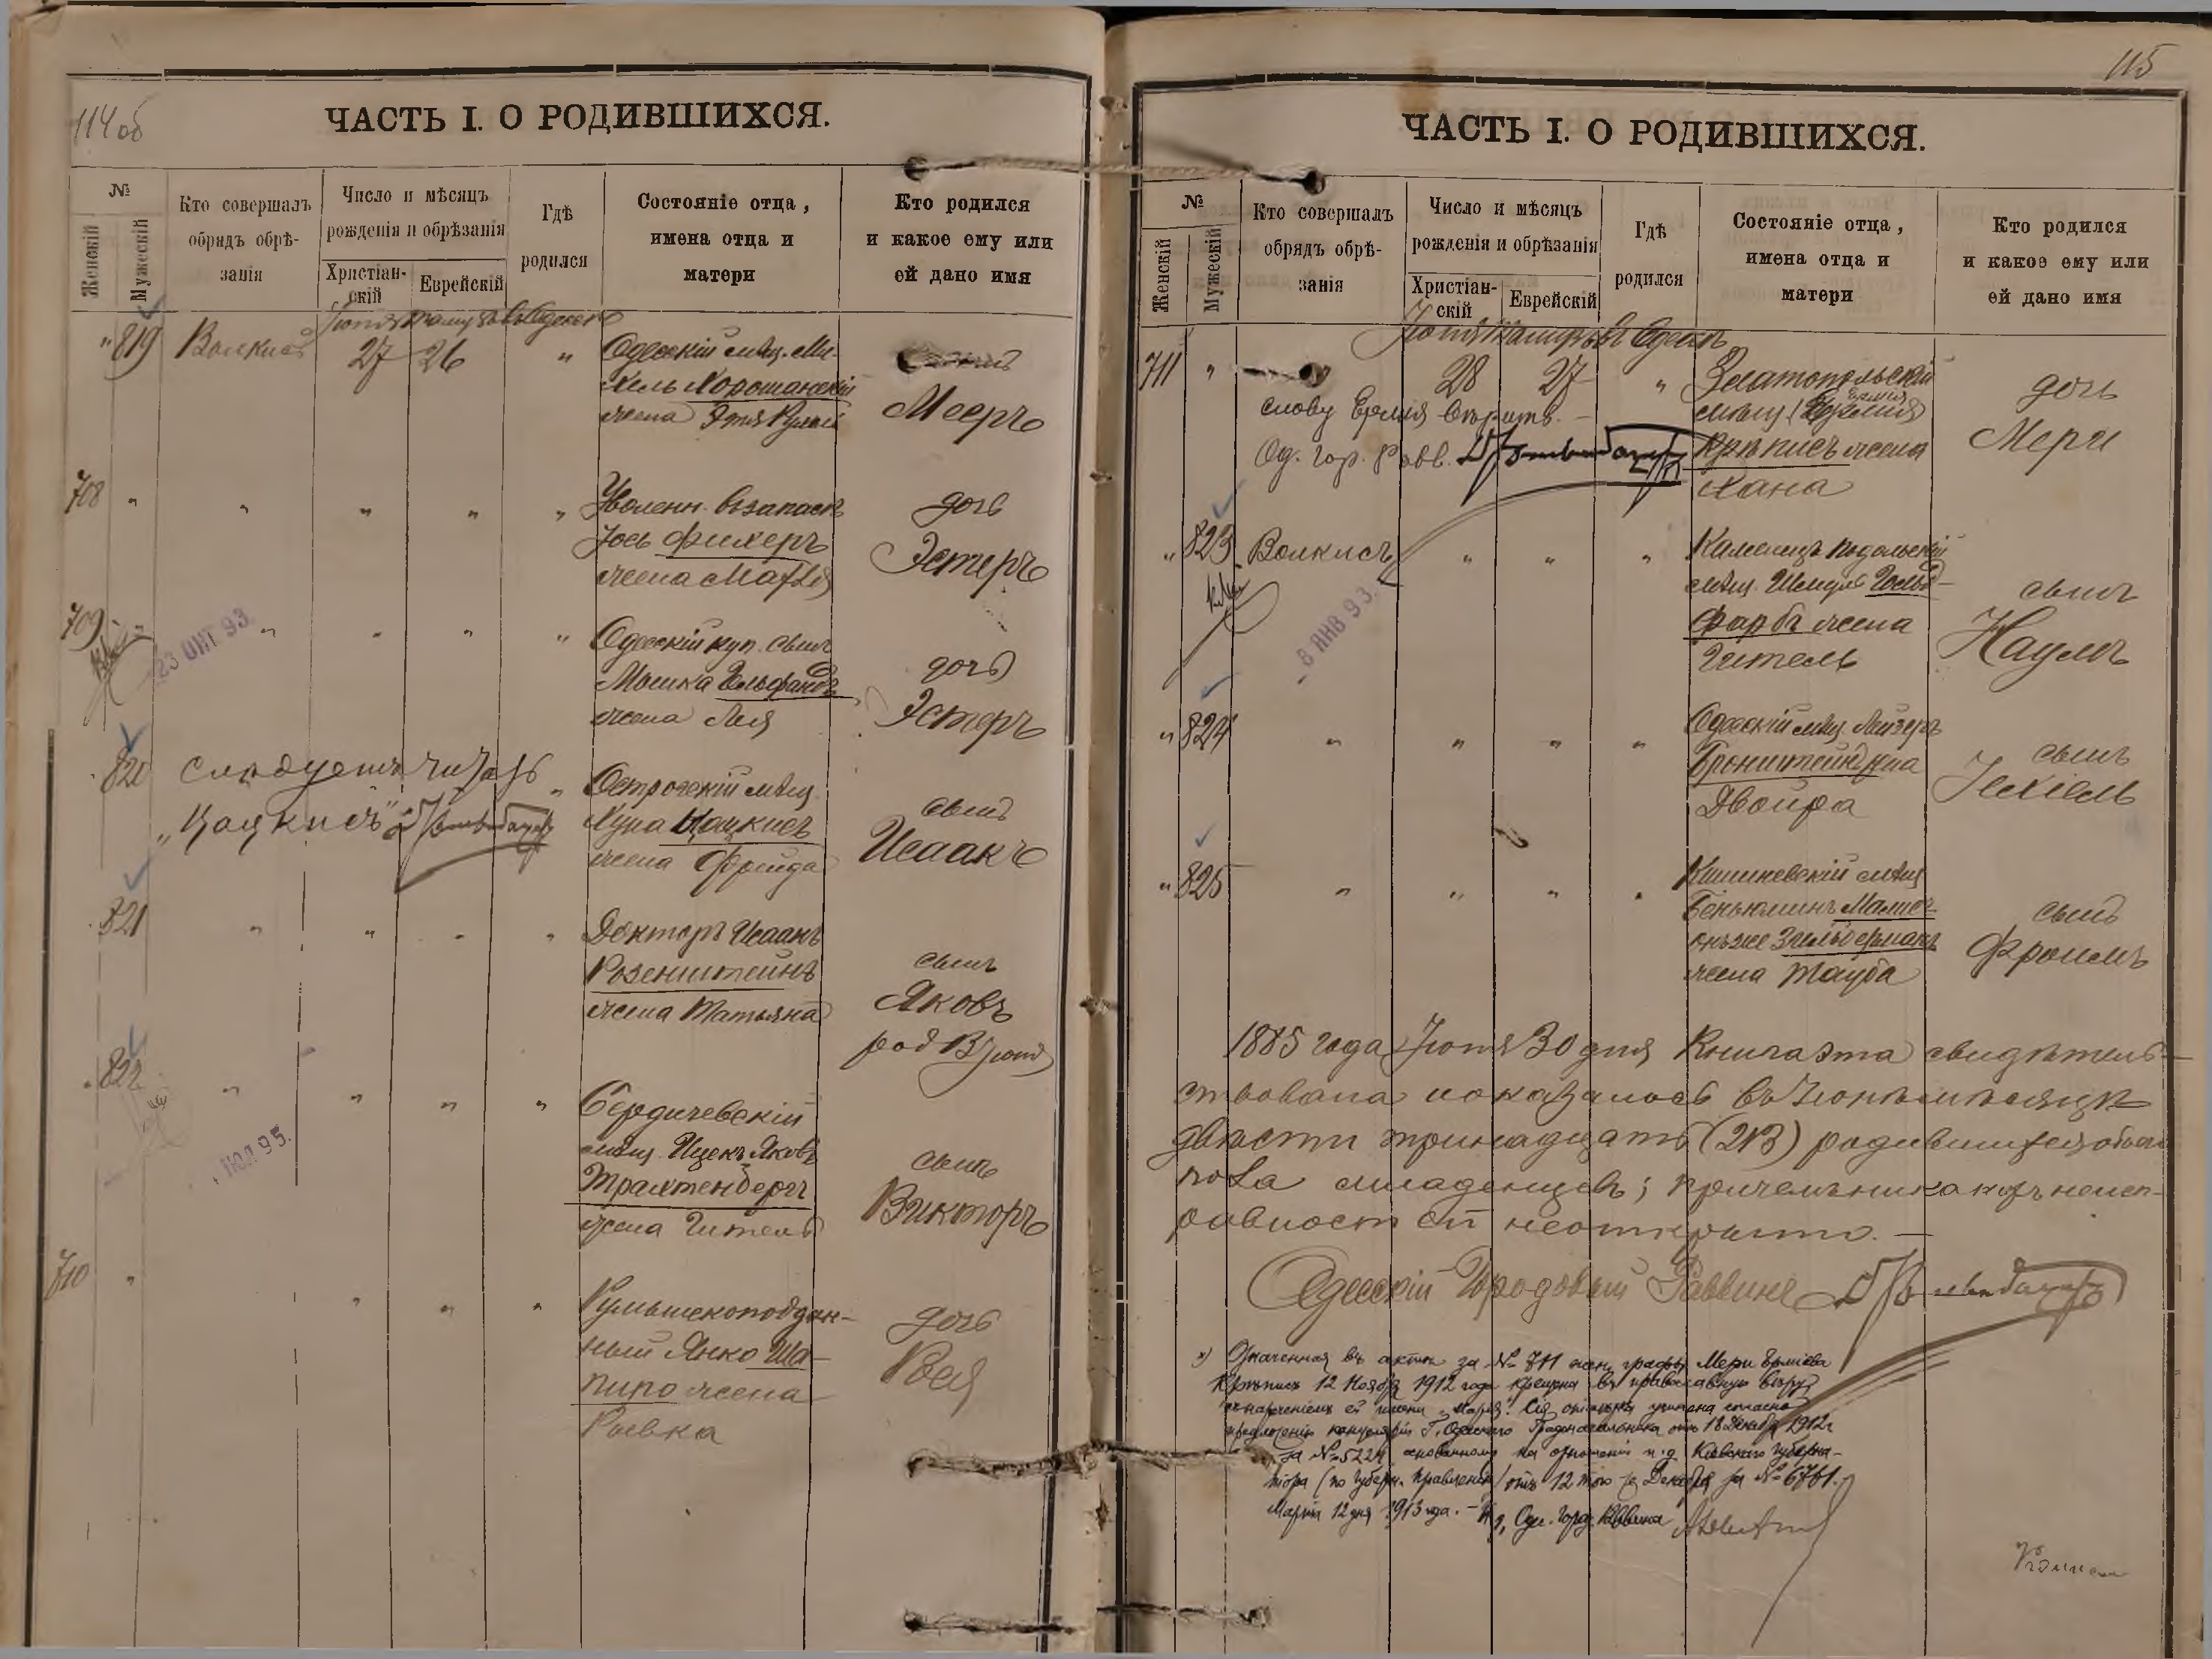 114 об
ЧАСТЬ I. О РОДИВШИХСЯ.
№
Женскій
Мужескій
Кто совершалъ
обрядъ обрѣ-
занія
Число и мѣсяцъ
рожденія и обрѣзанія
Христіан-
скій
Еврейскій
Гдѣ
родился
Состояніе отца,
имена отца и
матери
Кто родился
и какое ему или
ей дано имя
Іюня Тамуза въ Одессѣ
" 819 Волкисъ 27 26 " Одесскій мѣщ. Ми-
хель Хорошанскій
жена Этя Рухля
сынъ
Мееръ
708 " " " " " Уволенн. въ запасъ
Іось Фихеръ
жена
дочь
Эстеръ
709 " " " " " Одесскій куп. сынъ
Мошка Ельфандъ
жена Лея
дочь
Эстеръ
23 ОКТ 93
" 820 Слѣдуетъ читать "
"Цацкисъ"
Острогскій мѣщ.
Хуна Цацкисъ
жена Фрейда
сынъ
Исаакъ
" 821 " " " " Докторъ Исаакъ
Розенштейнъ
жена Татьяна
сынъ
Яковъ
род 3 Іюня
" 822 " " " " Бердичевскій
мѣщ. Ицекъ Яковъ
Трахтенбергъ
жена Гитель
сынъ
Викторъ
ІЮЛ 95.
710 " " " " Румынскоподдан-
ный Янко Ша-
пиро жена
Ривка
дочь
Рейя
115
ЧАСТЬ I. О РОДИВШИХСЯ.
№
Женскій
Мужескій
Кто совершалъ
обрядъ обрѣ-
занія
Число и мѣсяцъ
рожденія и обрѣзанія
Христіан-
скій
Еврейскій
Гдѣ
родился
Состояніе отца,
имена отца и
матери
Кто родился
и какое ему или
ей дано имя
Іюня Тамуза въ Одессѣ
711 " 28 27 " Златопольскій
Слову Ермія вѣрить. —
Од. гор. Равв.
мѣщ. Ермія
Крѣписъ жена
Хана
дочь
Мери
" 823 Волкисъ " " " Каменецъ Подольскій
мѣщ. Шмуль Гольд-
фарбъ жена
Гитель
сынъ
Наумъ
- 8 ЯНВ 93.
" 824 " " " " Одесскій мѣщ. Лейзеръ
Бронштейнъ жена
Двойра
сынъ
Іехіель
" 825 " " " " Кишиневскій мѣщ.
Беньюминъ
онъ же Зильберманъ
жена Тауба
сынъ
Фроимъ
1885 года Іюня 30 дня Книга эта свидѣтель-
ствована и оказалось въ Іюнѣ мѣсяцѣ
двѣсти тринадцать (213) родившихся обоего
пола младенцевъ; причемъ никакихъ неис-
равностей не открыто. —
Одесскій Городовый Раввинъ
×) Означенная въ актѣ за № 711 жен. графы Мери Ерміева
Крѣписъ 12 Ноября 1912 года крещена въ православную вѣру
съ нареченіемъ ей имени "Марія". Сія отмѣтка учинена согласно
предложенія канцеляріи Г. Одесскаго Градоначальника отъ 18 Декабря 1912 г.
за № 5224 основанному на отношеніи и. д. Кіевскаго Губерна-
тора (по Губерн. Правленію) отъ 12 того же Декабря за № 6761.
Марта 12 дня 1913 года. — И. д. Одес. Город. Раввина